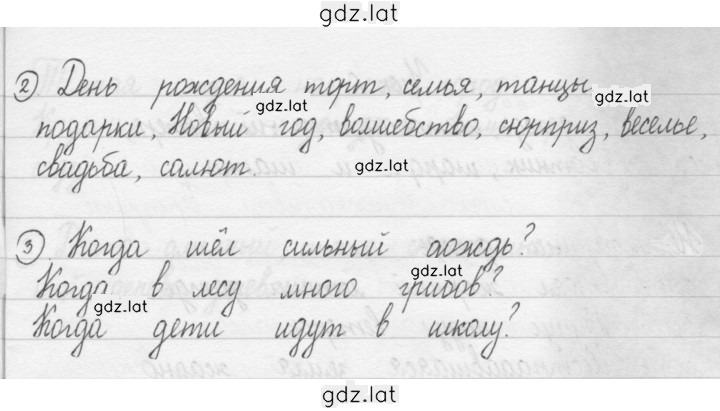 gdz.lat
2) День рождения торт, семья танцы
gdz.lat gdz.lat
подарки, Новый год, волшебство, сюрприз, веселье,
свадьба, салют. gdz.lat
3) Когда шёл сильный дождь?
Когда в лесу много грибов?
gdz.lat gdz.lat
Когда дети идут в школу?
gdz.lat